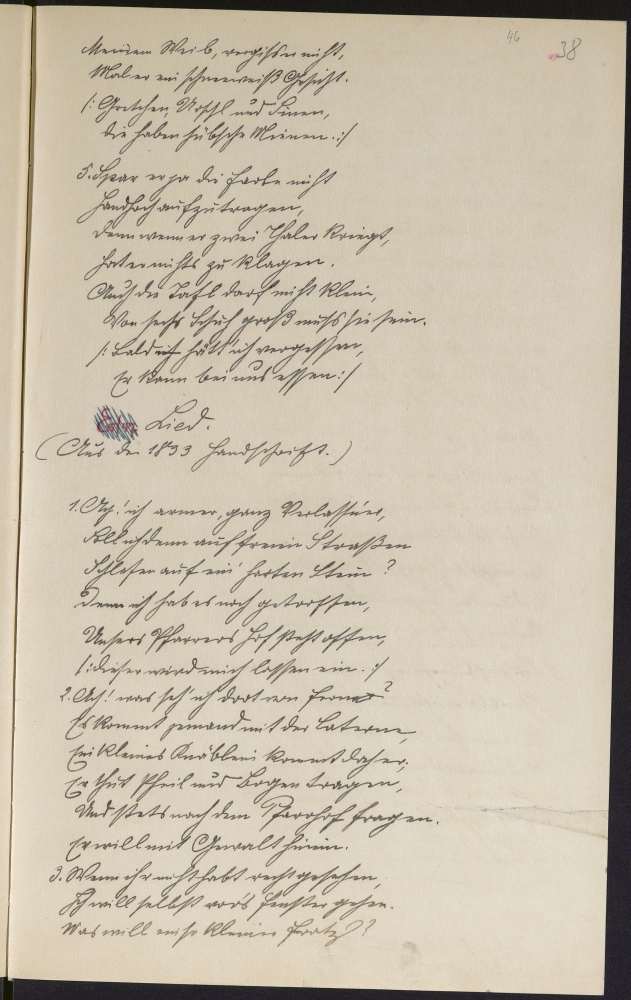 46 38
Meinem Weib, vergiss er nicht,
Mal er ein schneeweiß Gesicht.
/: Gretchen, Rosl und Linen,
die haben hübsche Mienen. :/
5. Spar er ja die Farbe nicht
Handhoch aufzutragen,
denn wenn er zwei Thaler kriegt,
hat er nichts zu klagen.
Auch die Tafl darf nicht klein,
Von sechs Schuh groß muss sie sein.
/: Bald hätt' ich vergessen,
Er kann bei uns essen :/
Lied.
(Aus der 1833 Handschrift.)
1. Ach! ich armer, ganz Verlassner,
Soll ich denn auf freien Straßen
Schlafen auf ein' harten Stein?
Denn ich hab es noch getroffen,
Unsers Pfarrers Hof steht offen,
/: dieser wird mich lassen ein. :/
2. Ach! was seh' ich dort von ferne?
Es kommt jemand mit der Laterne,
Ein kleines Knäblein kommt daher;
Er thut Pfeil und Bogen tragen,
Und stets nach dem Pfarrhof fragen.
Er will mit Gewalt hinein.
3. Wenn ihr nicht habt recht gesehen,
Ich will selbst vor's Fenster gehen.
Was will unser kleiner Fratz?